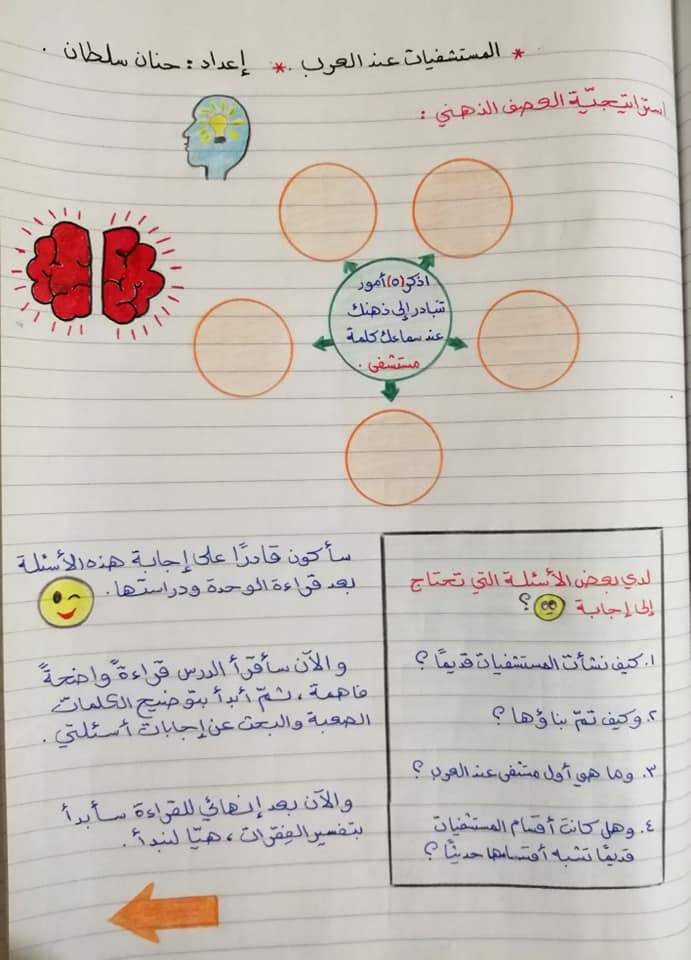 * المستشفيات عند العرب . * إعداد : حنان سلطان .
استراتيجيّة العصف الذهني :
اذكر (٥) أمور
تتبادر إلى ذهنك
عند سماعك كلمة
مستشفى .
لدي بعض الأسئلة التي تحتاج
إلى إجابة ؟
١. كيف نشأت المستشفيات قديمًا ؟
٢. وكيف تمّ بناؤها ؟
٣. وما هي أول مشفى عند العرب ؟
٤. وهل كانت أقسام المستشفيات
قديمًا تشبه أقسامها حديثًا ؟
سأكون قادرًا على إجابة هذه الأسئلة
بعد قراءة الوحدة ودراستها .
والآن سأقرأ الدرس قراءةً واضحةً
فاهمة ، ثمّ أبدأ بتوضيح الكلمات
الصعبة والبحث عن إجابات أسئلتي .
والآن بعد إنهائي للقراءة سأبدأ
بتفسير الفقرات ، هيّا لنبدأ .